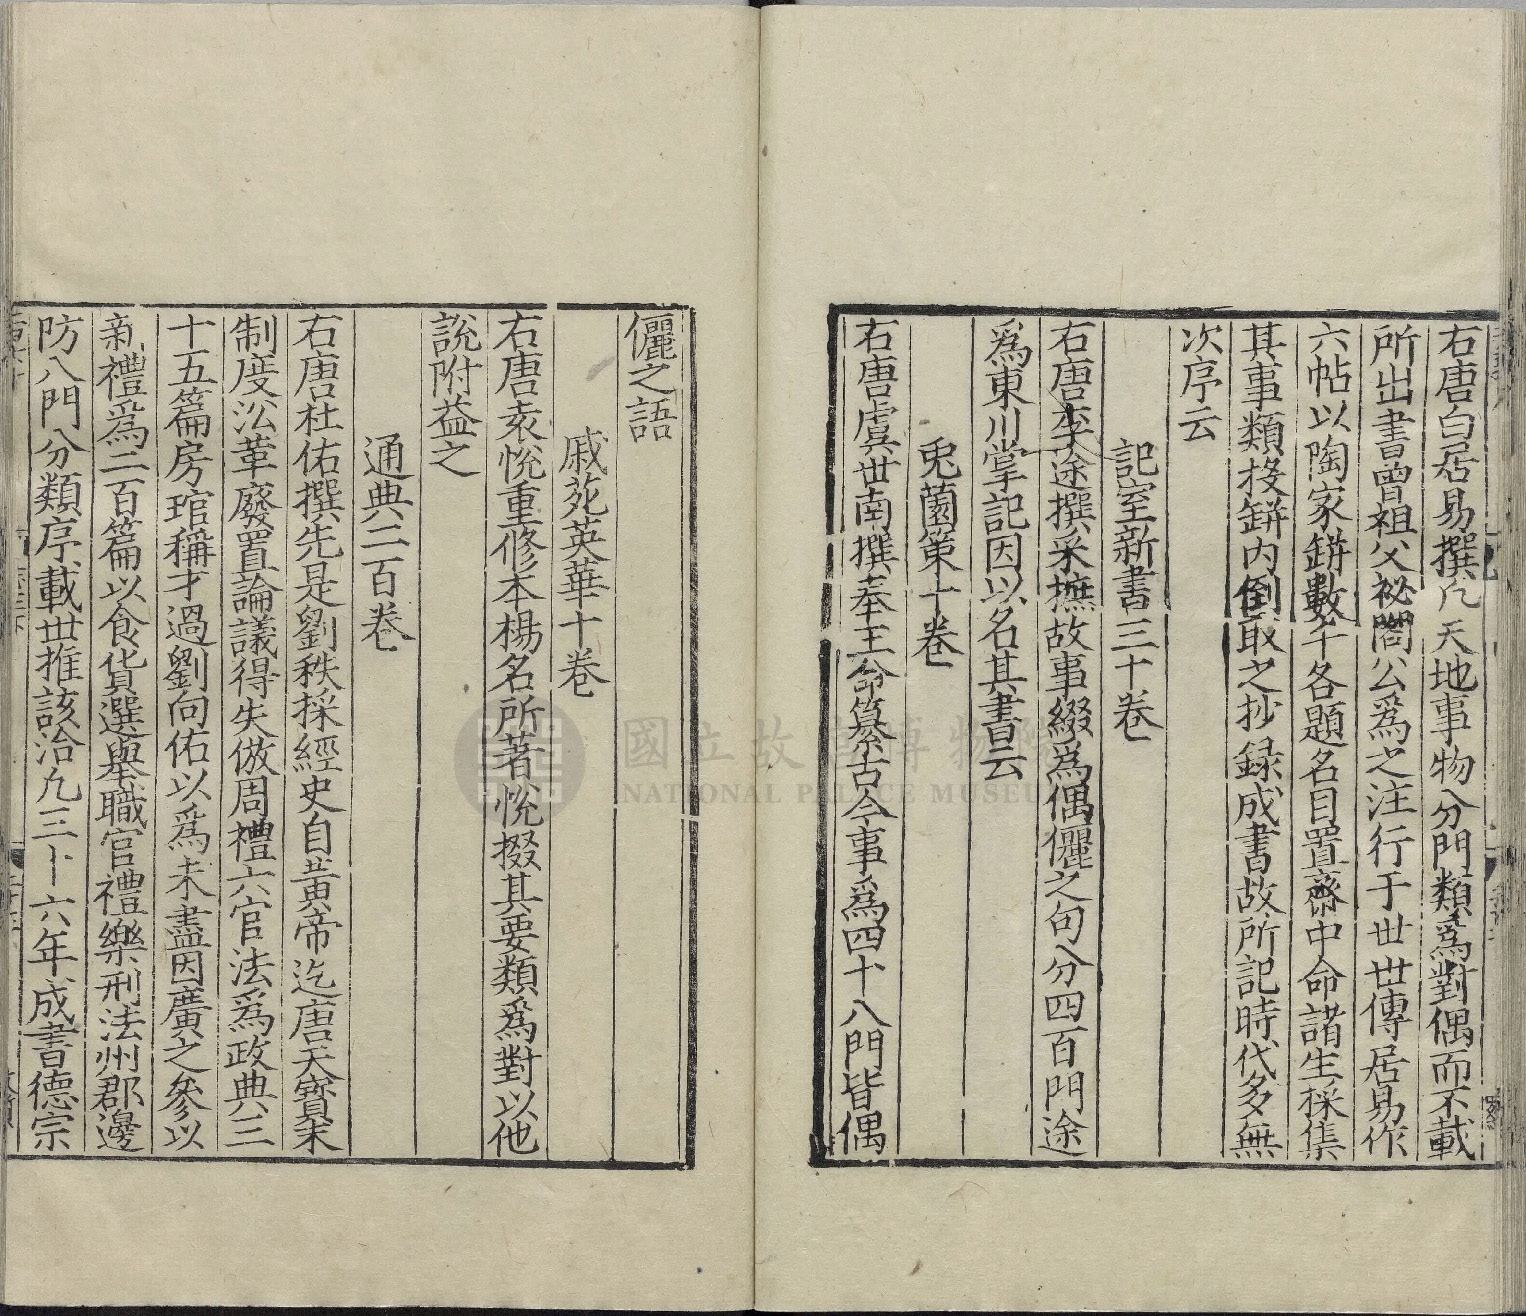 右唐白居易撰凡天地事物分門類爲對偶而不載
所出書曾祖父祕閣公爲之注行于世世傳居易作
六帖以陶家缾數千各題名目置齋中命諸生採集
其事類投缾内倒取之抄録成書故所記時代多無
次序云
記室新書三十卷
右唐李途撰采摭故事綴爲偶儷之句分四百門途
爲東川掌記因以名其書云
兎園策十卷
右唐虞世南撰奉王命纂古今事爲四十八門皆偶
儷之語
戚苑英華十卷
右唐袁悅重修本楊名所著悅掇其要類爲對以他
說附益之
通典二百卷
右唐杜佑撰先是劉秩採經史自黃帝迄唐天寶末
制度沿革廢置論議得失倣周禮六官法爲政典三
十五篇房琯稱才過劉向佑以爲未盡因廣之參以
新禮爲二百篇以食貨選舉職官禮樂刑法州郡邊
防八門分類序載世推該洽凡三十六年成書德宗
國立故宮博物院
NATIONAL PALACE MUSEUM